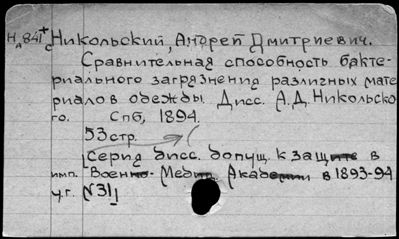 Н841+ Никольский, Андрей Дмитриевич.
Сравнительная способность бакте-
риального загрязнения различных мате-
риалов одежды. Дисс. А.Д. Никольско-
го. Спб, 1894.
53 стр.
(Серия дисс. допущ. к защите в
имп. Военно-Медиц. Академии в 1893-94
у.г. №31)